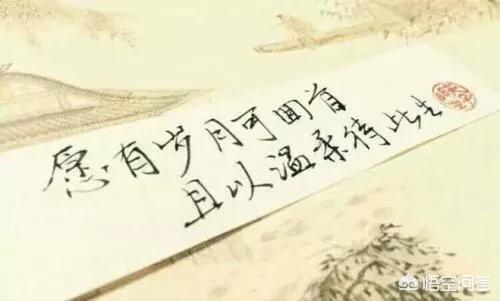 愿有岁月可回首
且以温柔待此生
悟空问答